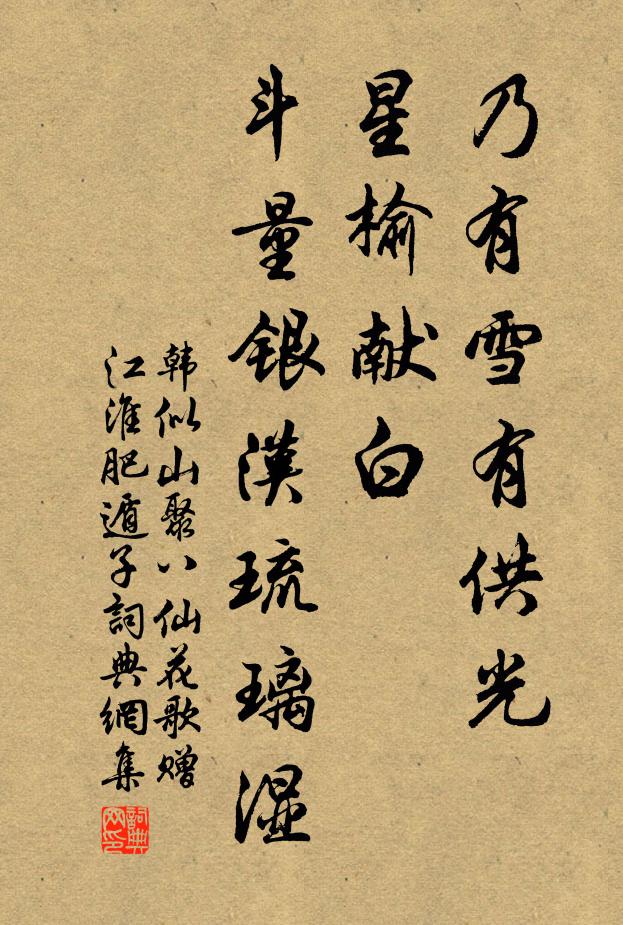 乃有雪有供光
星榆献白
斗量银漢琉璃湿
韩似山聚八仙花歌赠
江淮肥遁子詞典網集
詞典网印